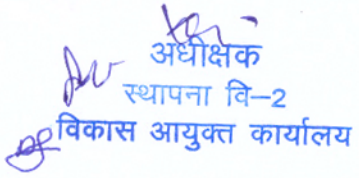 अधीक्षक
स्थापना वि–2
विकास आयुक्त कार्यालय